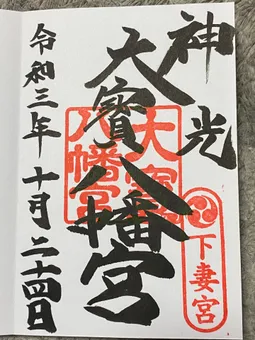 神光
下妻宮
大寳八幡宮
大寳
八幡宮
令和三年十月二十四日